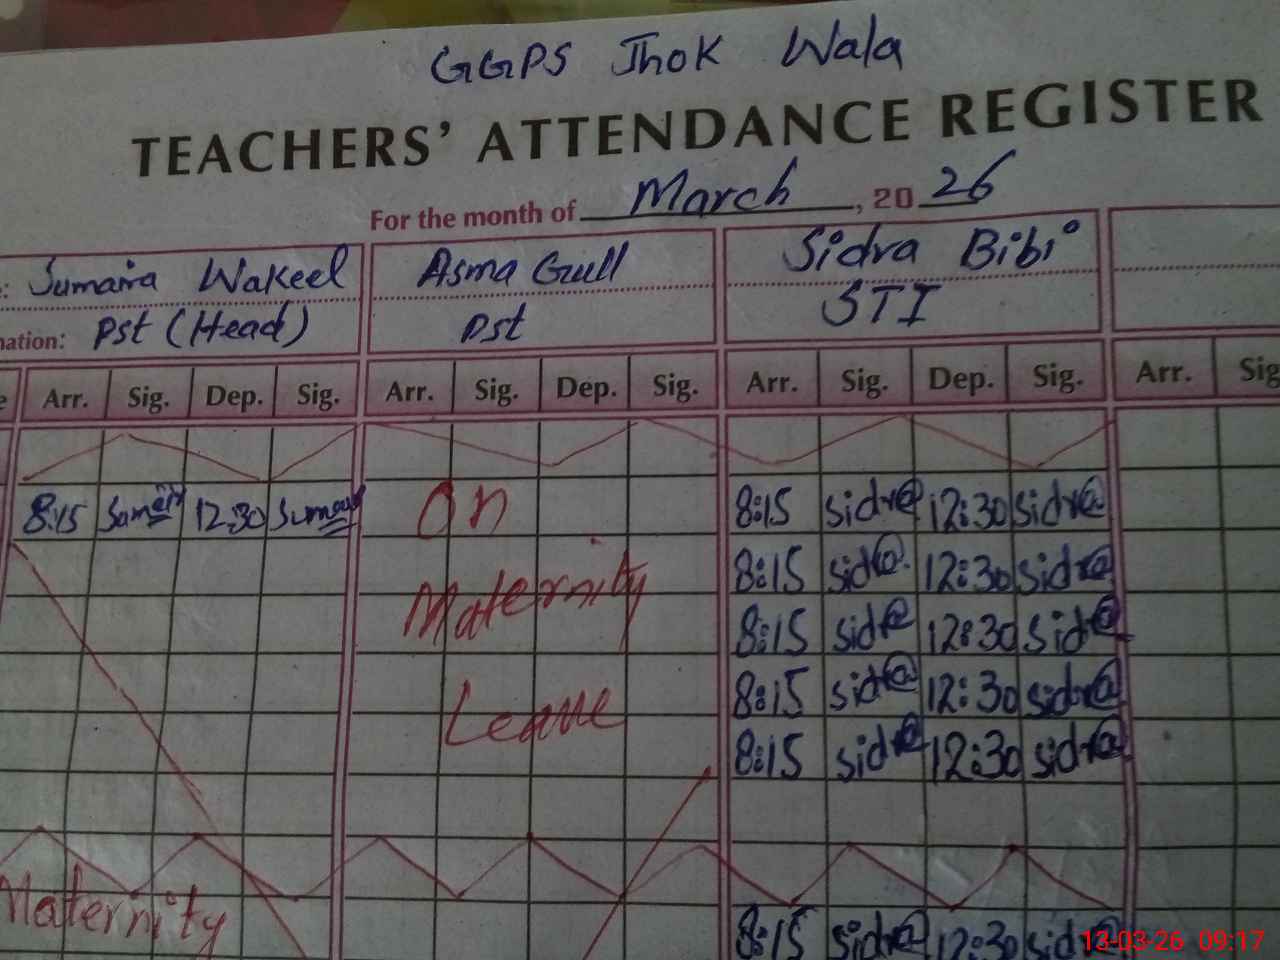 GGPS Jhok Wala
TEACHERS' ATTENDANCE REGISTER
For the month of March, 2026
e: Sumaira Wakeel Asma Gull Sidra Bibi
nation: Pst (Head) Pst STI
e Arr. Sig. Dep. Sig. Arr. Sig. Dep. Sig. Arr. Sig. Dep. Sig. Arr. Sig
8:15 12:30 On 8:15 sidra 12:30 sidra
8:15 sidra 12:30 sidra
Maternity 8:15 sidra 12:30 sidra
8:15 sidra 12:30 sidra
Leave 8:15 sidra 12:30 sidra
Maternity 8:15 sidra 12:30 sidra
13-03-26 09:17